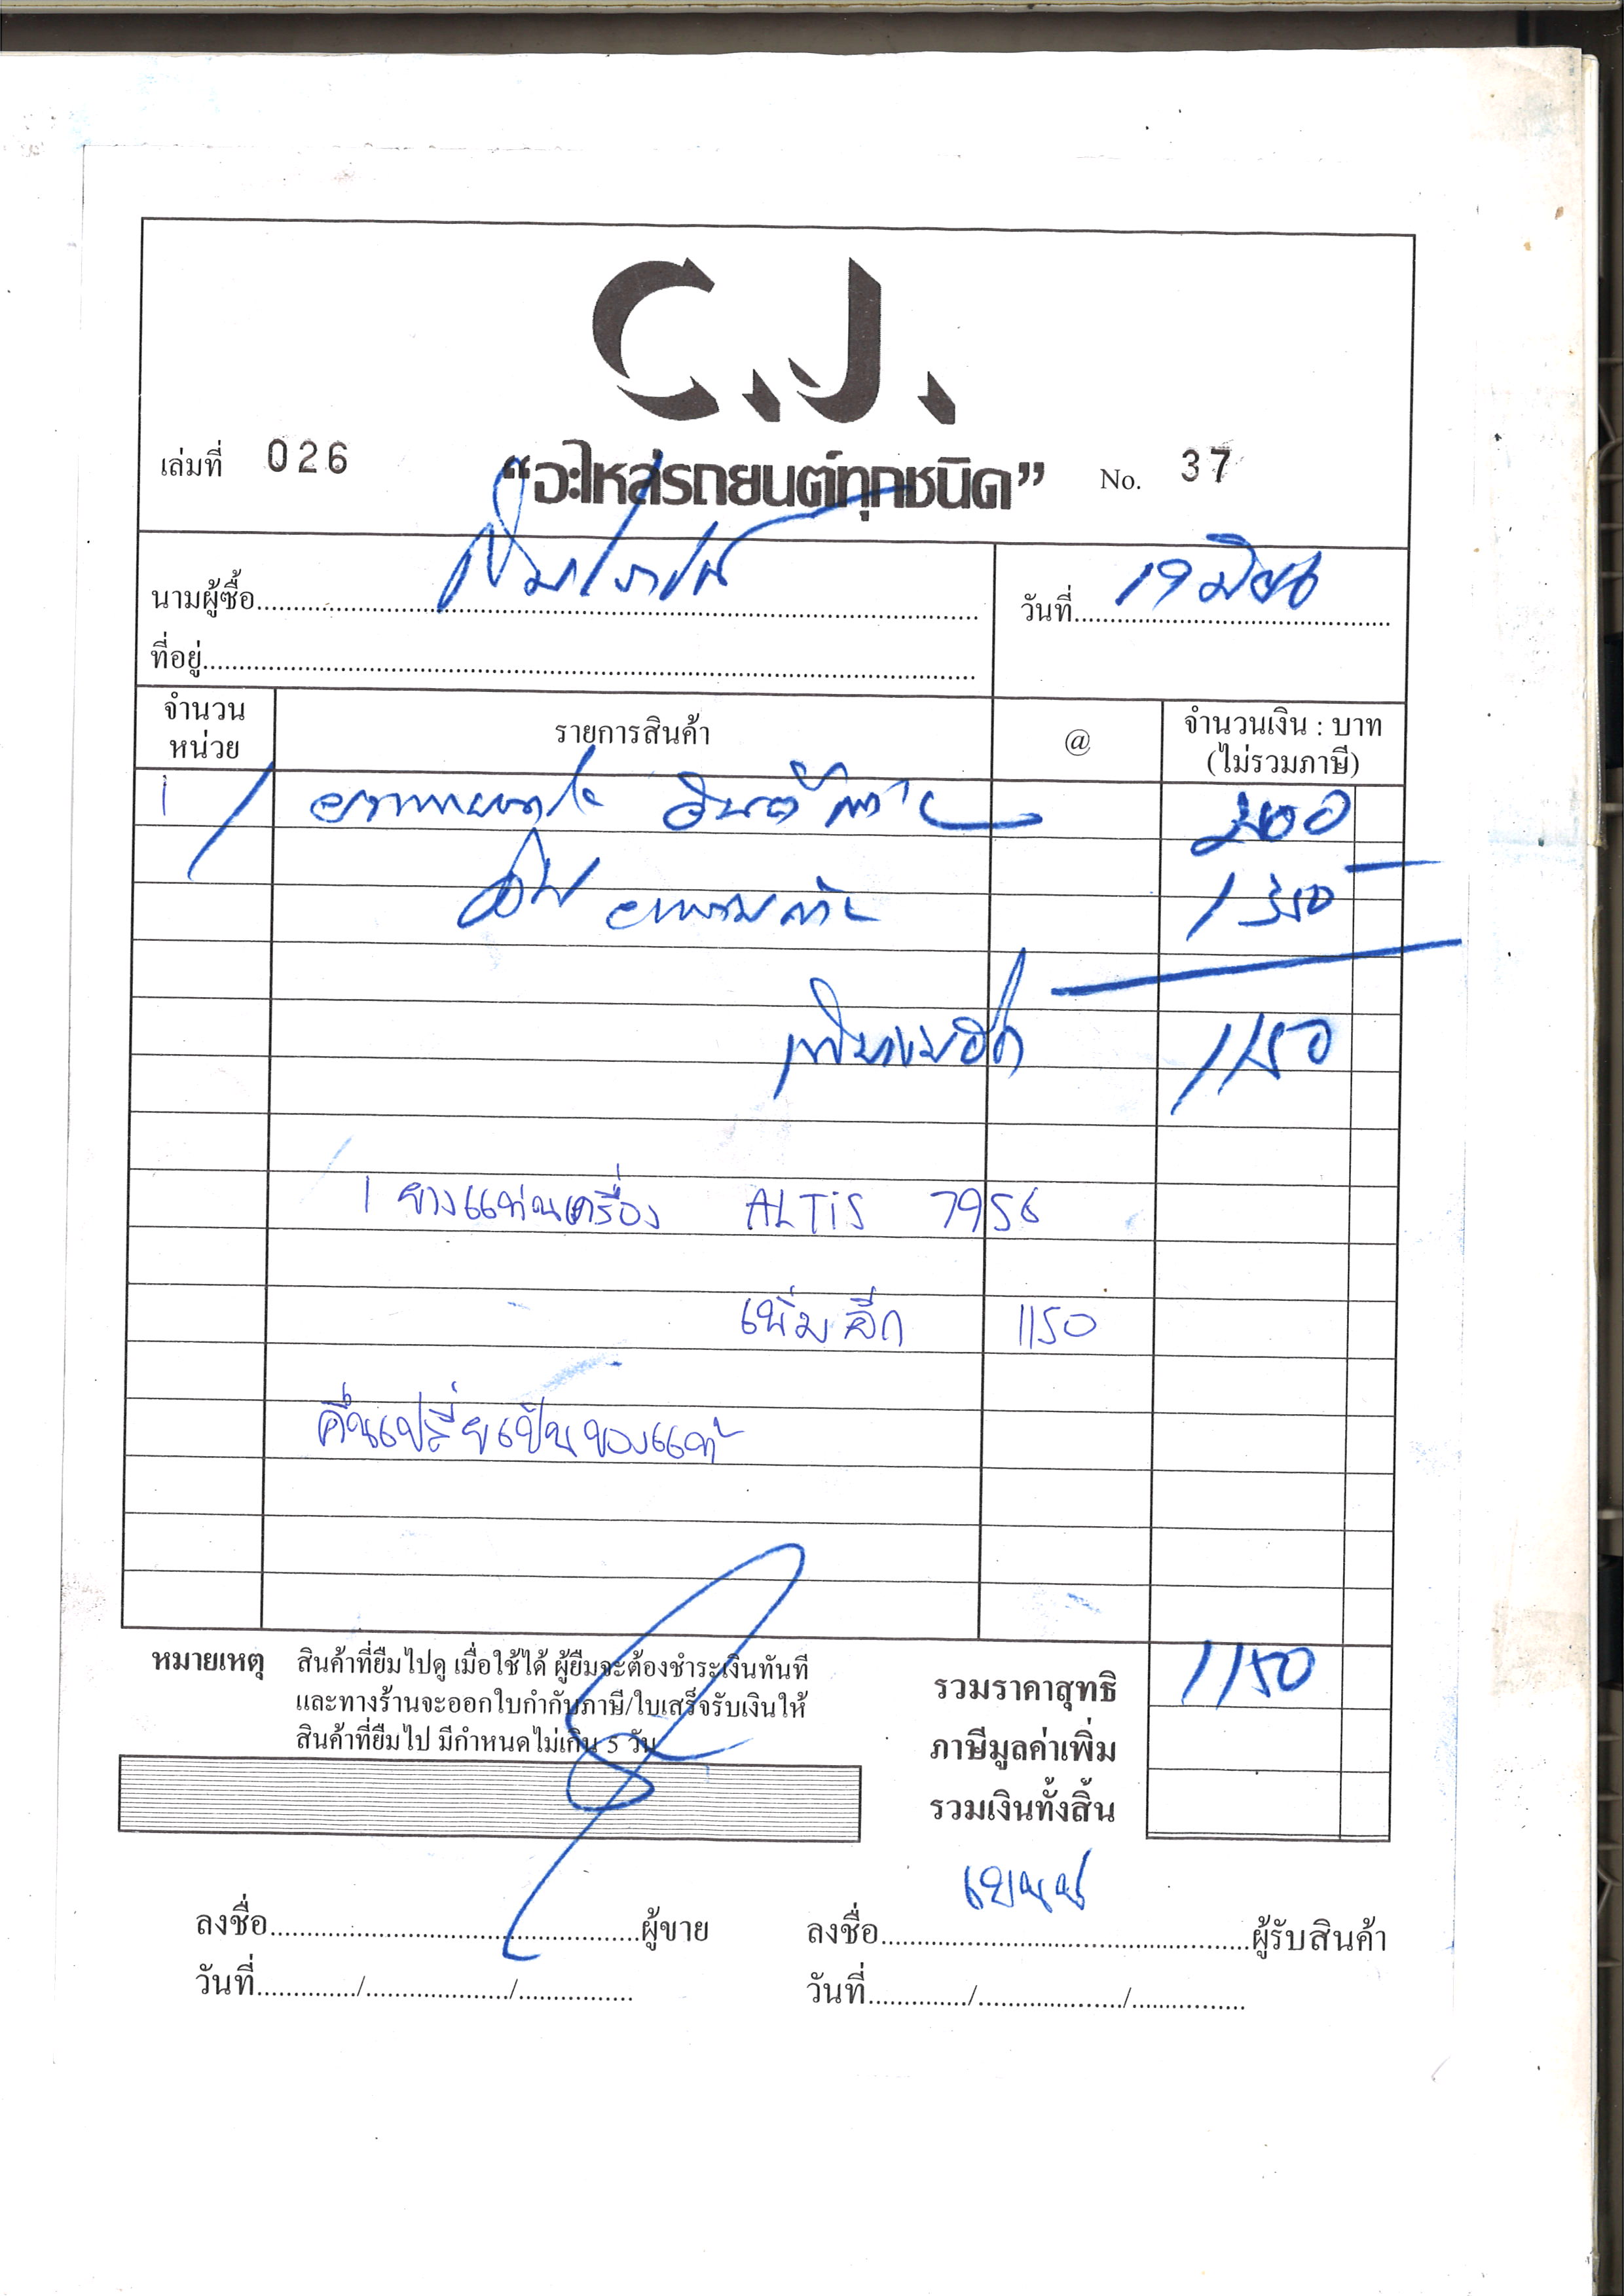 C.J.
เล่มที่ 026 “อะไหล่รถยนต์ทุกชนิด” No. 37
นามผู้ซื้อ วันที่ 19
ที่อยู่
จำนวน หน่วย รายการสินค้า @ จำนวนเงิน : บาท (ไม่รวมภาษี)
1
1350
1150
1 ยางแท่นเครื่อง ALTiS 7956
เพิ่มอีก 1150
คืนเปลี่ยเป็นของแท้
หมายเหตุ สินค้าที่ยืมไปดู เมื่อใช้ได้ ผู้ยืมจะต้องชำระเงินทันที
และทางร้านจะออกใบกำกับภาษี/ใบเสร็จรับเงินให้
สินค้าที่ยืมไป มีกำหนดไม่เกิน 5 วัน
รวมราคาสุทธิ 1150
ภาษีมูลค่าเพิ่ม
รวมเงินทั้งสิ้น
ลงชื่อ ผู้ขาย ลงชื่อ ผู้รับสินค้า
วันที่ / / วันที่ / /